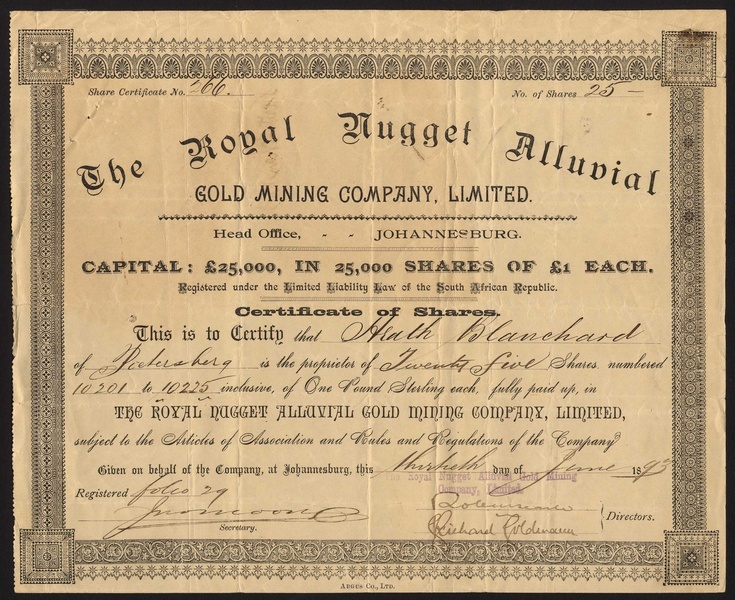 Share Certificate No. 266. No. of Shares 25 —
The Royal Nugget Alluvial
GOLD MINING COMPANY, LIMITED.
Head Office, - - JOHANNESBURG.
CAPITAL: £25,000, IN 25,000 SHARES OF £1 EACH.
Registered under the Limited Liability Law of the South African Republic.
Certificate of Shares.
This is to Certify that Heath Blanchard
of Pietersberg is the proprietor of Twenty five Shares, numbered
10201 to 10225 inclusive, of One Pound Sterling each, fully paid up, in
THE ROYAL NUGGET ALLUVIAL GOLD MINING COMPANY, LIMITED,
subject to the Articles of Association and Rules and Regulations of the Company
Given on behalf of the Company, at Johannesburg, this thirtieth day of June 1893
The Royal Nugget Alluvial Gold Mining
Company, Limited.
Registered folio 29
Richard Goldmann
Directors.
Secretary.
ARGUS CO., LTD.